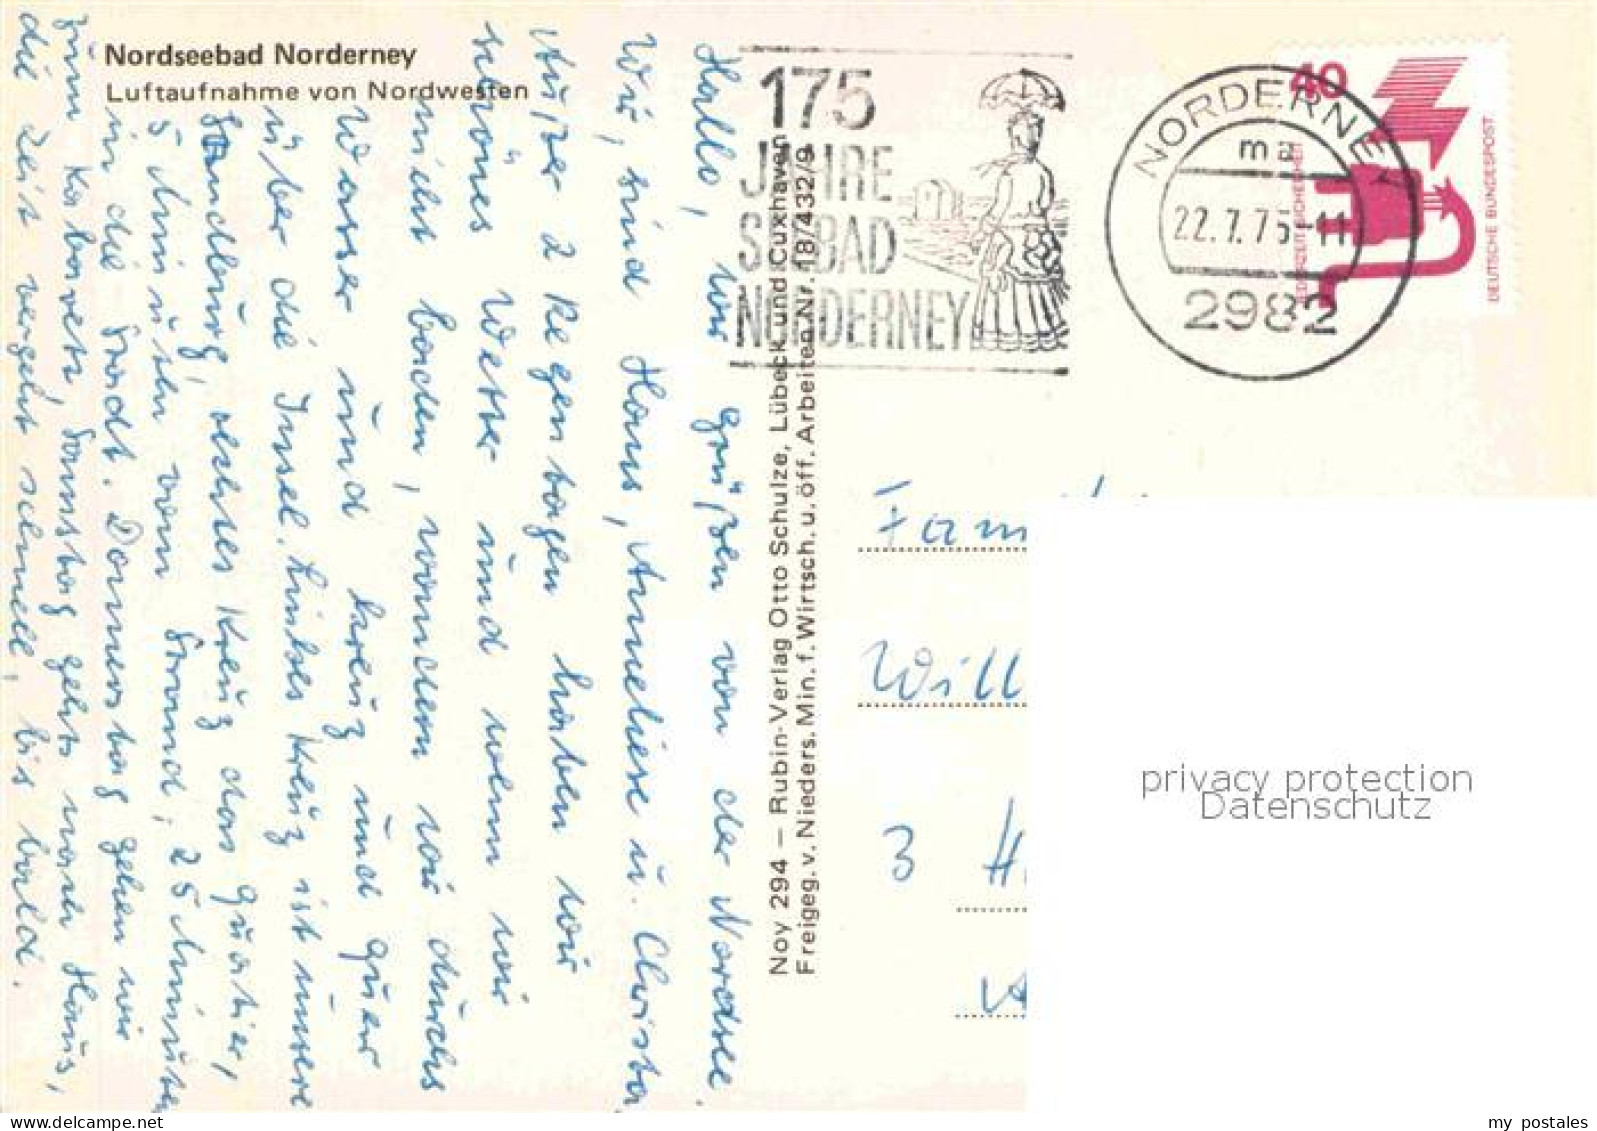 Nordseebad Norderney
Luftaufnahme von Nordwesten
Hallo, wir grüßen von der Nordsee.
Wir, sind Hans, Anneliese u. Christa
Außer 2 Regentagen haben wir
schönes Wetter und wenn wir
nicht baden, wandern wir durchs
Wasser und kreuz und quer
über die Insel. Linkes Kreuz ist unsere
Sandburg, rechtes Kreuz das Quartier,
5 Minuten vom Strand, 25 Minuten
in die Stadt. Donnerstag gehen wir
zum Kabarett, Samstag gehts nach Haus,
die Zeit vergeht schnell, bis bald.
Noy 294 – Rubin-Verlag Otto Schulze, Lübeck und Cuxhaven
Freigeg. v. Nieders. Min. f. Wirtsch. u. öff. Arbeiten Nr. 18/432/9
175
JAHRE
SEEBAD
NORDERNEY
NORDERNEY
ma
22.7.75-11
2982
40
JEDERZEIT SICHERHEIT
DEUTSCHE BUNDESPOST
Fam
Will
3 H
privacy protection
Datenschutz
my postales
www.delcampe.net